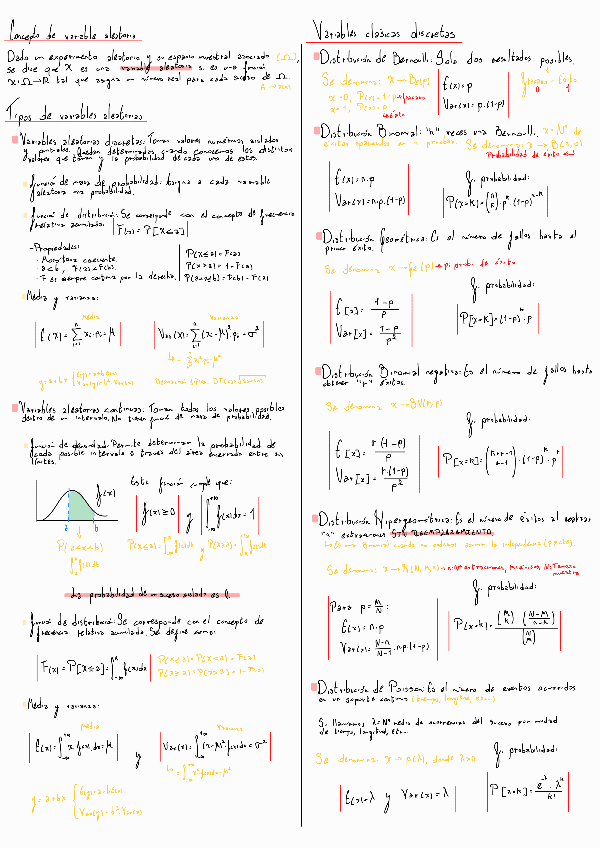 Concepto de variable aleatoria
Dado un experimento aleatorio y su espacio muestral asociado (Ω),
se dice que X es una variable aleatoria si es una función
x: Ω → R tal que asigna un número real para cada suceso de Ω.
Tipos de variables aleatorias
Variables aleatorias discretas: Toman valores numéricos aislados
y puntuales. Quedan determinadas cuando conocemos los distintos
valores que toman y la probabilidad de cada uno de estos.
función de masa de probabilidad: Asigna a cada variable
aleatoria una probabilidad.
función de distribución: Se corresponde con el concepto de frecuencia
relativa acumulada. F(x) = P[X ≤ x]
-Propiedades:
· Monótona creciente.
· a < b, F(a) < F(b).
· F es siempre continua por la derecha.
P(X ≤ a) = F(a)
P(X > a) = 1 - F(a)
P(a < x ≤ b) = F(b) - F(a)
Media y varianza:
Media
E(X) = Σ xi · pi = μ
Varianza
Var(X) = Σ (xi - μ)² · pi = σ²
Variables aleatorias continuas: Toman todos los valores posibles
dentro de un intervalo. No tienen función de masa de probabilidad.
función de densidad: Permite determinar la probabilidad de
cada posible intervalo a través del área encerrada entre sus
límites.
f(x)
a b
P(a ≤ x ≤ b)
Esta función cumple que:
f(x) ≥ 0 y ∫ f(x)dx = 1
La probabilidad de un suceso aislado es 0.
función de distribución: Se corresponde con el concepto de
frecuencia relativa acumulada. Se define como:
F(x) = P[X ≤ x] = ∫ f(x)dx
Media y varianza:
Media
E(x) = ∫ x · f(x) · dx = μ
y
Varianza
Var(x) = ∫ (x - μ)² · f(x)dx = σ²
Variables clásicas discretas
Distribución de Bernoulli: Solo dos resultados posibles.
Se denomina: X → Be(p)
E(x) = p
Var(x) = p · (1-p)
Distribución Binomial: "n" veces una Bernoulli.
Se denomina X → B(n, p)
Probabilidad de éxito
E(x) = n · p
Var(x) = n · p · (1-p)
f. probabilidad:
P(X=K) = (n K) · p^K · (1-p)^n-K
Distribución Geométrica: Es el número de fallos hasta el
primer éxito.
Se denomina X → Ge(p) → p: prob. de éxito
E[x] = 1-p / p
Var[x] = 1-p / p²
f. probabilidad:
P[X=K] = (1-p)^K · p
Distribución Binomial negativa: Es el número de fallos hasta
obtener "r" éxitos.
Se denomina X → BN(r, p)
E[x] = r · (1-p) / p
Var[x] = r · (1-p) / p²
f. probabilidad:
P[X=K] = (K+r-1 K-1) · (1-p)^K · p^r
Distribución Hipergeométrica: Es el número de éxitos al realizar
"n" extracciones SIN REEMPLAZAMIENTO.
f. probabilidad:
Para p = M/N:
E(x) = n · p
Var(x) = N-n / N-1 · n · p · (1-p)
P(X=K) = (M K) · (N-M n-K) / (N n)
Distribución de Poisson: Es el número de eventos ocurridos
en un soporte continuo (tiempo, longitud, etc...)
Si llamamos λ = Nº medio de ocurrencias del suceso por unidad
de tiempo, longitud, etc...
Se denomina: X → P(λ), donde λ > 0
f. probabilidad:
E(x) = λ y Var(x) = λ
P[X=K] = e^-λ · λ^K / K!